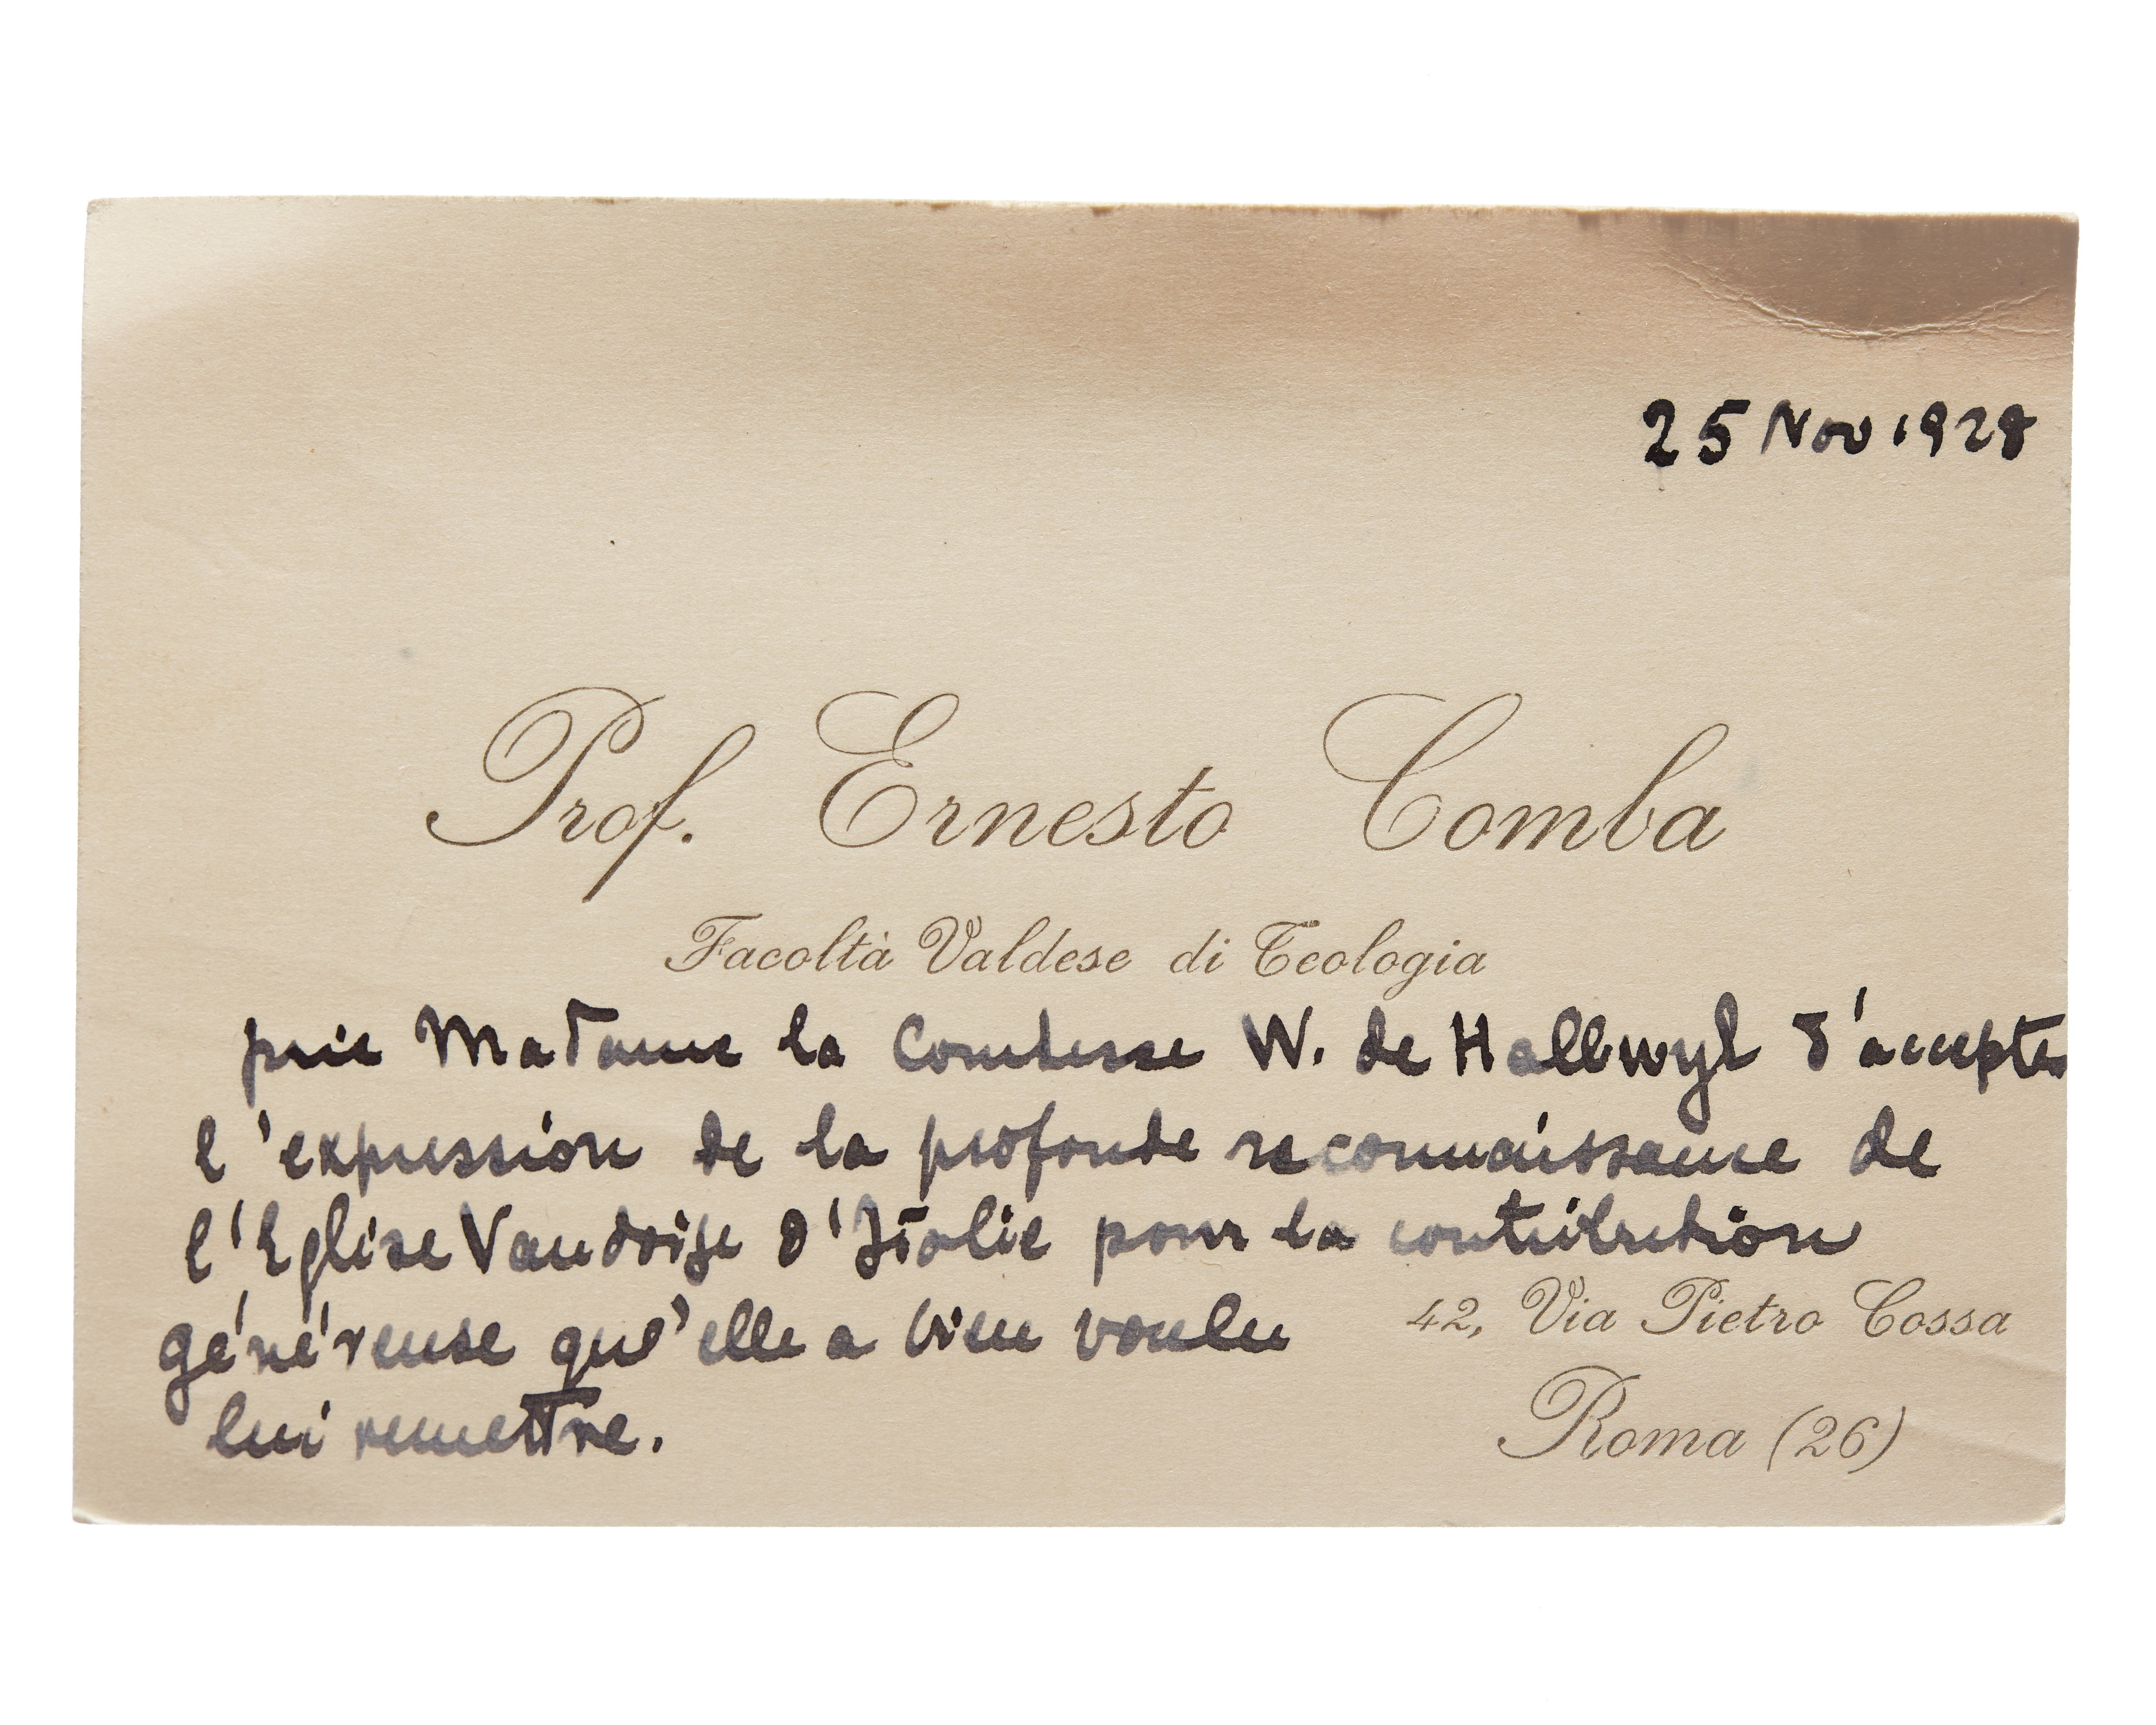 25 Nov 1928
Prof. Ernesto Comba
Facoltà Valdese di Teologia
prie Madame la Comtesse W. de Hallwyl d'accepter
l'expression de la profonde reconnaissance de
l'Eglise Vaudoise d'Italie pour la contribution
généreuse qu'elle a bien voulu
lui remettre.
42, Via Pietro Cossa
Roma (26)